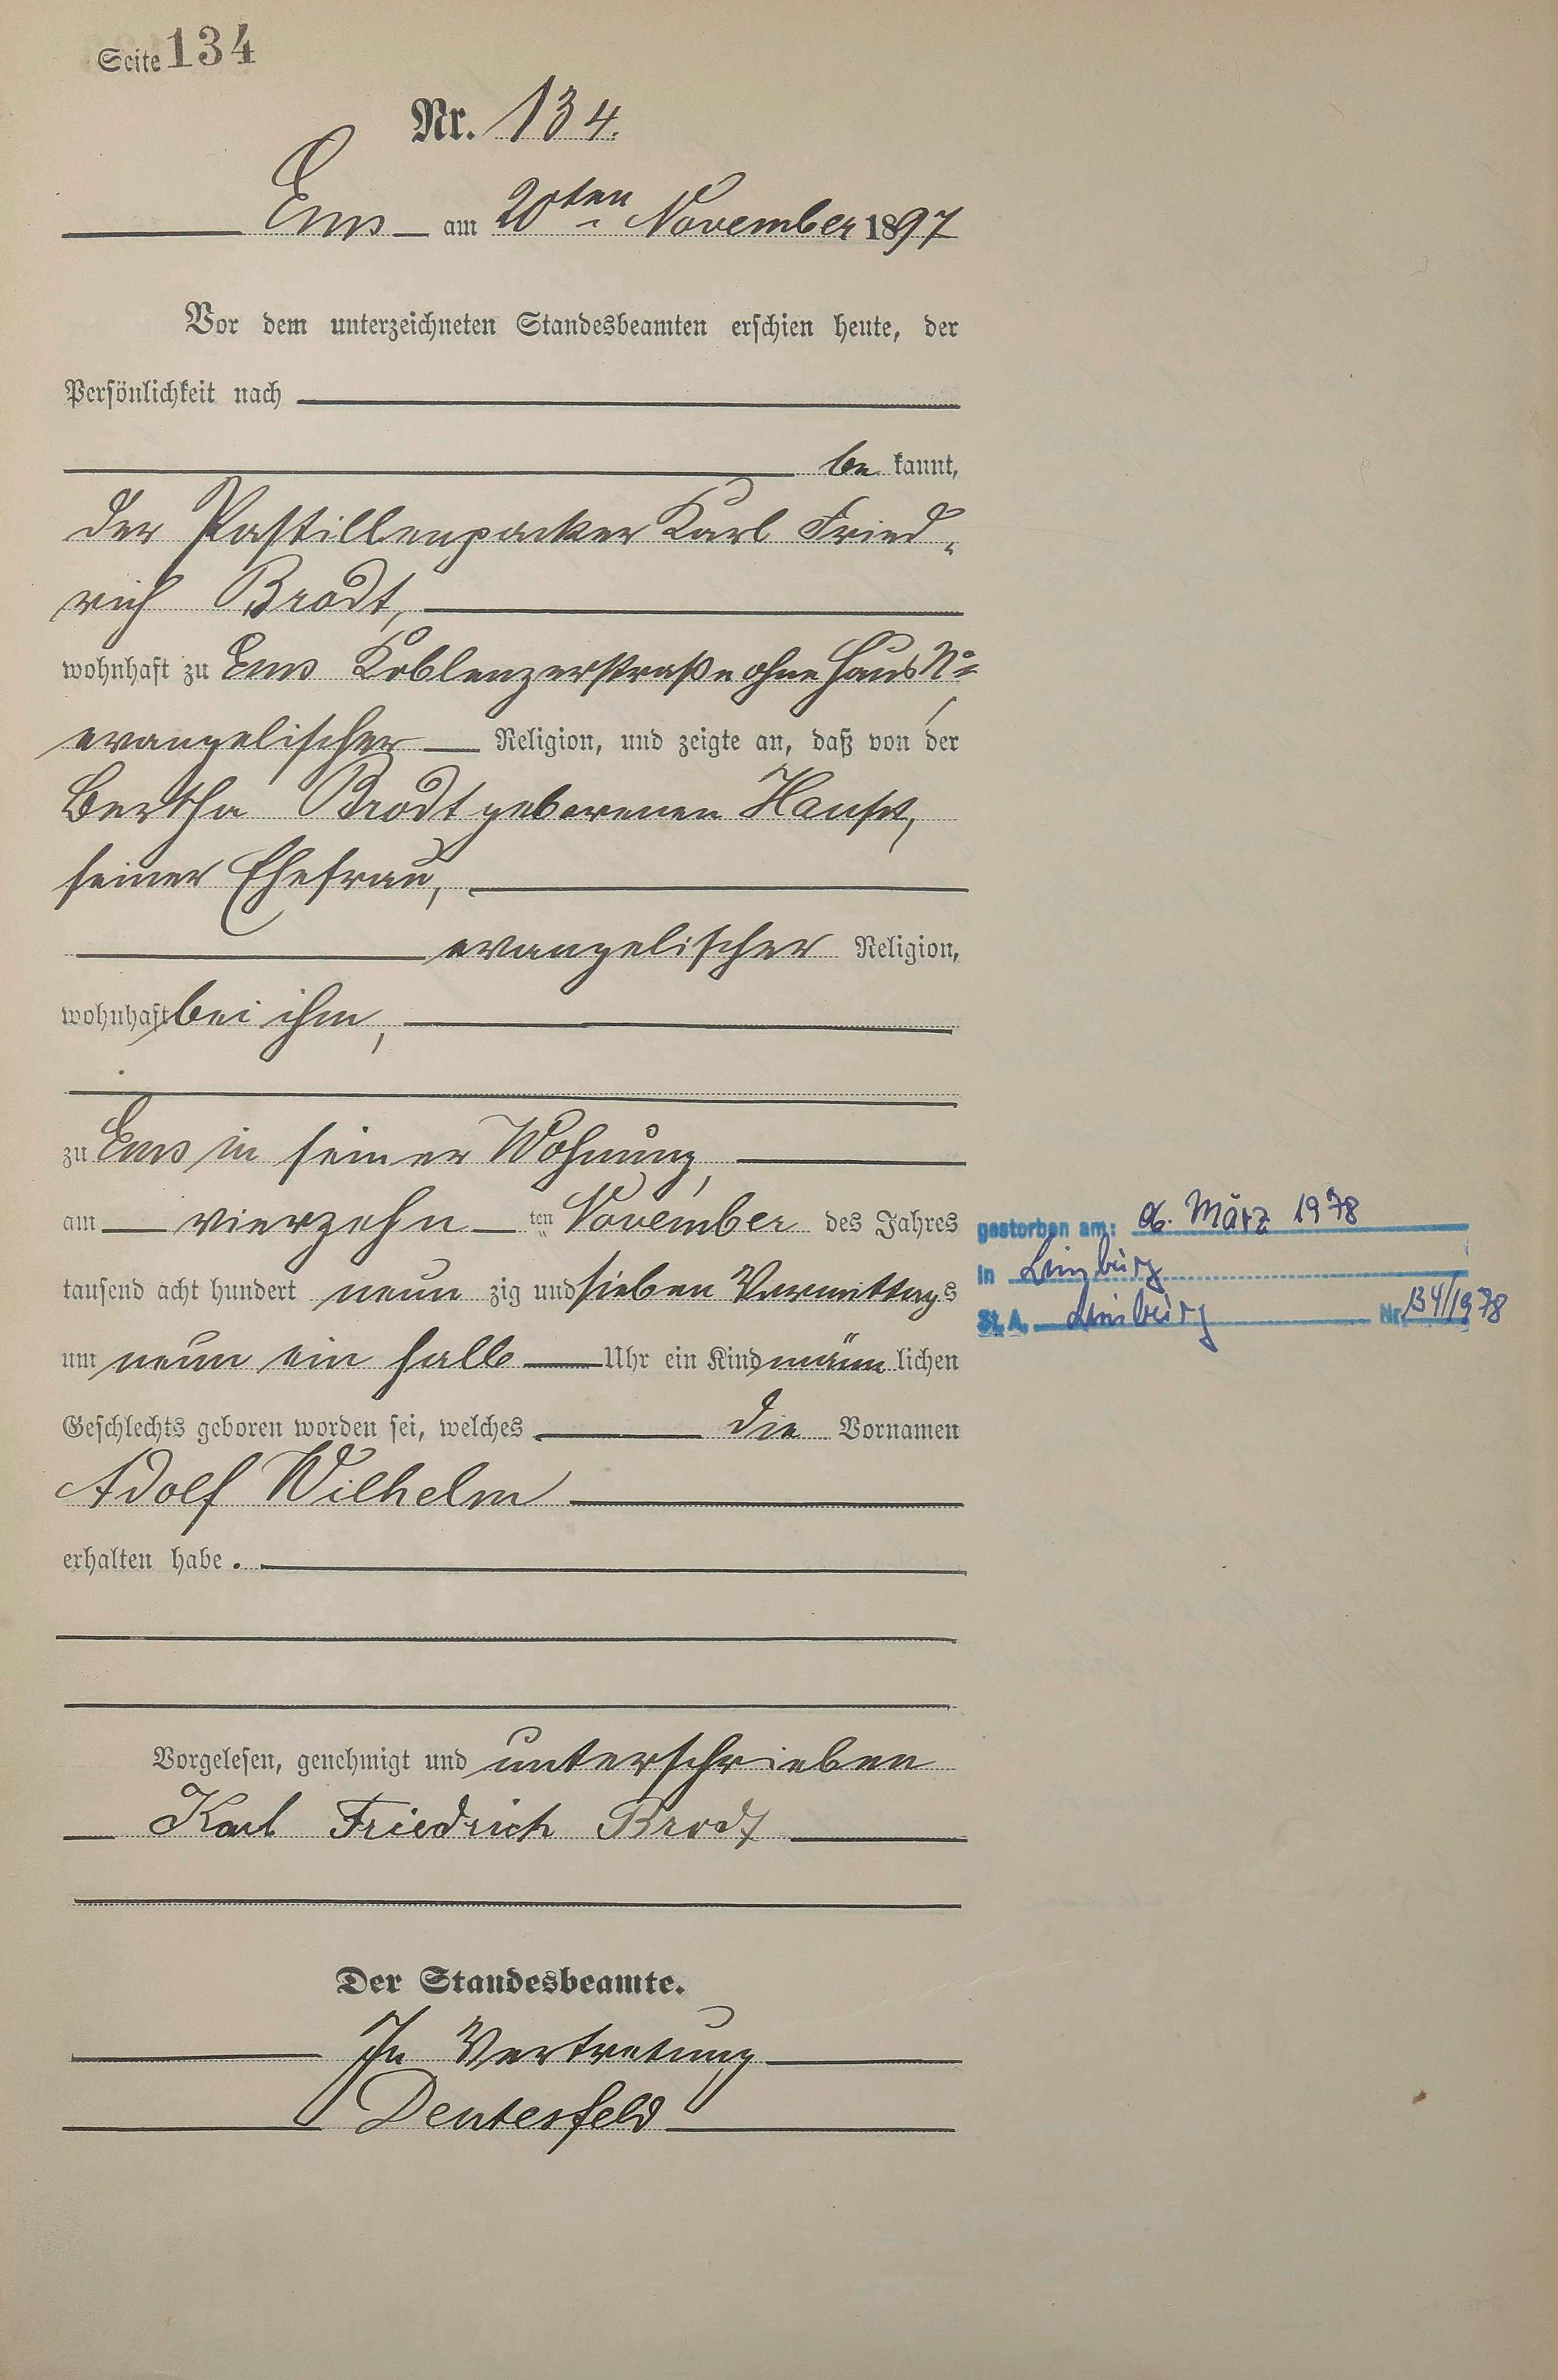 Seite 134
Nr. 134.
Ems am 20ten November 1897
Vor dem unterzeichneten Standesbeamten erschien heute, der
Persönlichkeit nach
be kannt,
der Pastillenpacker Karl Fried-
rich Brodt,
wohnhaft zu Ems Koblenzerstraße ohne Haus No
evangelischer Religion, und zeigte an, daß von der
Bertha Brodt geborenen Haupt,
seiner Ehefrau,
evangelischer Religion,
wohnhaft bei ihm,
zu Ems in seiner Wohnung,
am vierzehn ten November des Jahres
tausend acht hundert neun zig und sieben Vormittags
um neun ein halb Uhr ein Kind männ lichen
Geschlechts geboren worden sei, welches die Vornamen
Adolf Wilhelm
erhalten habe.
Vorgelesen, genehmigt und unterschrieben
Karl Friedrich Brodt
Der Standesbeamte.
In Vertretung
Deutesfeld
gestorben am: 06. März 1978
in Limburg
St. A. Limburg Nr. 134/1978